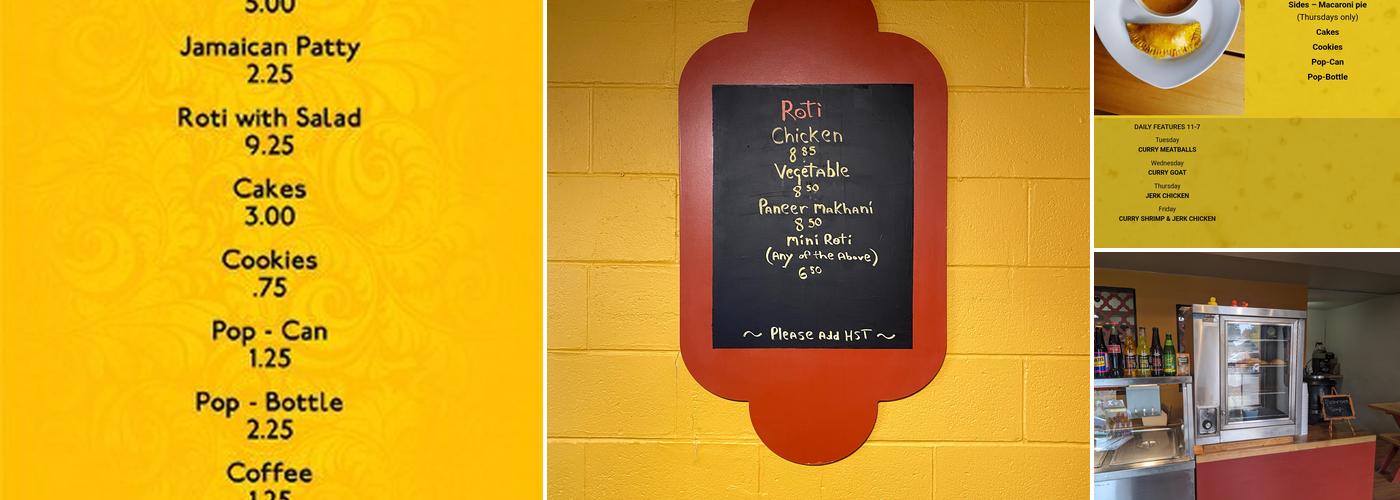 5.00
Jamaican Patty
2.25
Roti with Salad
9.25
Cakes
3.00
Cookies
.75
Pop - Can
1.25
Pop - Bottle
2.25
Coffee
1.25
Roti
Chicken
8 85
Vegetable
8 50
Paneer Makhani
8 50
mini Roti
(Any of the Above)
6 50
~ Please Add HST ~
Sides – Macaroni pie
(Thursdays only)
Cakes
Cookies
Pop-Can
Pop-Bottle
DAILY FEATURES 11-7
Tuesday
CURRY MEATBALLS
Wednesday
CURRY GOAT
Thursday
JERK CHICKEN
Friday
CURRY SHRIMP & JERK CHICKEN